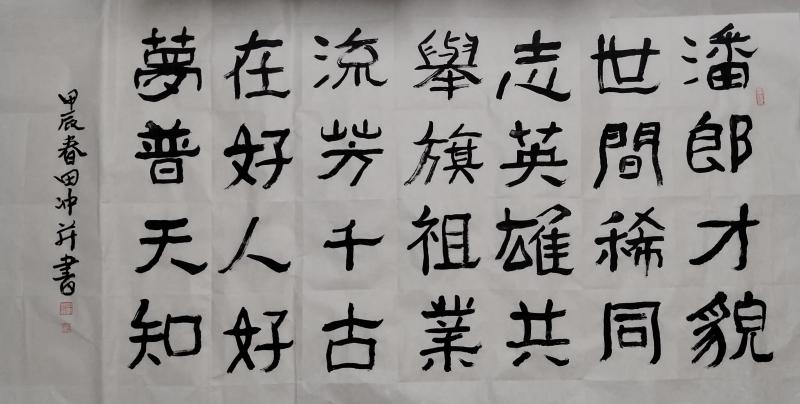 潘郎才貌
世間稀同
志英雄共
舉旗祖業
流芳千古
在好人好
夢普天知
甲辰春田冲并書